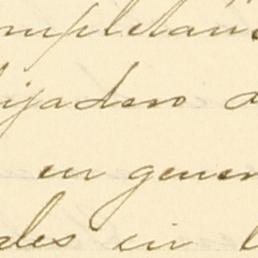 mpletan
ijadero d
en gener
des en l